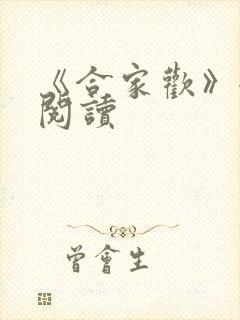 《合家歡》
閱讀
曾會生